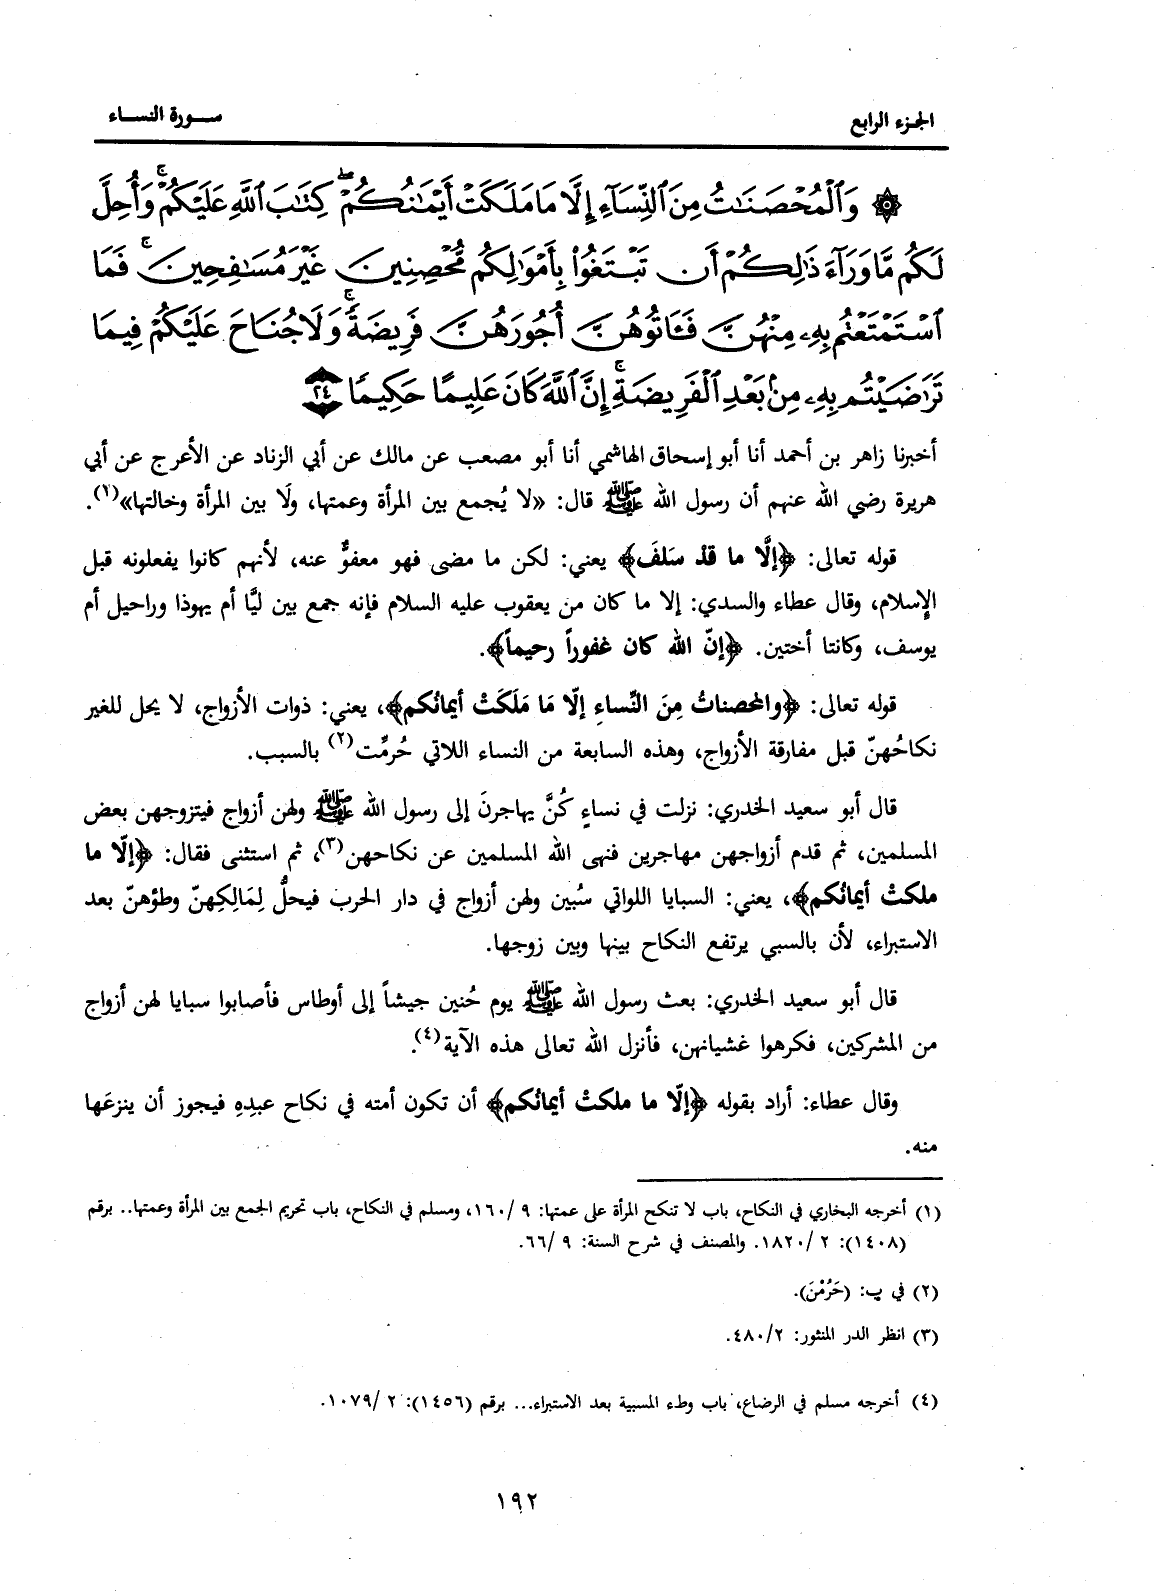 الجزء الرابع
سورة النساء
۞ وَٱلْمُحْصَنَٰتُ مِنَ ٱلنِّسَآءِ إِلَّا مَا مَلَكَتْ أَيْمَٰنُكُمْ ۖ كِتَٰبَ ٱللَّهِ عَلَيْكُمْ ۚ وَأُحِلَّ
لَكُم مَّا وَرَآءَ ذَٰلِكُمْ أَن تَبْتَغُوا۟ بِأَمْوَٰلِكُم مُّحْصِنِينَ غَيْرَ مُسَٰفِحِينَ ۚ فَمَا
ٱسْتَمْتَعْتُم بِهِۦ مِنْهُنَّ فَـَٔاتُوهُنَّ أُجُورَهُنَّ فَرِيضَةً ۚ وَلَا جُنَاحَ عَلَيْكُمْ فِيمَا
تَرَٰضَيْتُم بِهِۦ مِنۢ بَعْدِ ٱلْفَرِيضَةِ ۚ إِنَّ ٱللَّهَ كَانَ عَلِيمًا حَكِيمًا ٢٤
أخبرنا زاهر بن أحمد أنا أبو إسحاق الهاشمي أنا أبو مصعب عن مالك عن أبي الزناد عن الأعرج عن أبي
هريرة رضي الله عنهم أن رسول الله ﷺ قال: «لا يُجمع بين المرأة وعمتها، ولَا بين المرأة وخالتها»(١).
قوله تعالى: ﴿إلَّا ما قدْ سَلفَ﴾ يعني: لكن ما مضى فهو معفوٌّ عنه، لأنهم كانوا يفعلونه قبل
الإسلام، وقال عطاء والسدي: إلا ما كان من يعقوب عليه السلام فإنه جمع بين ليَّا أم يهوذا وراحيل أم
يوسف، وكانتا أختين. ﴿إنّ الله كان غفوراً رحيماً﴾.
قوله تعالى: ﴿والمحصناتُ مِنَ النِّساءِ إلّا مَا مَلَكَتْ أيمائكم﴾، يعني: ذوات الأزواج، لا يحل للغير
نكاحُهنّ قبل مفارقة الأزواج، وهذه السابعة من النساء اللاتي حُرمِّت(٢) بالسبب.
قال أبو سعيد الخدري: نزلت في نساءٍ كُنَّ يهاجرنَ إلى رسول الله ﷺ ولهن أزواج فيتزوجهن بعض
المسلمين، ثم قدم أزواجهن مهاجرين فنهى الله المسلمين عن نكاحهن(٣)، ثم استثنى فقال: ﴿إلّا ما
ملكتْ أيمائكم﴾، يعني: السبايا اللواتي سُبين ولهن أزواج في دار الحرب فيحلُّ لِمَالِكِهنّ وطؤهنّ بعد
الاستبراء، لأن بالسبي يرتفع النكاح بينها وبين زوجها.
قال أبو سعيد الخدري: بعث رسول الله ﷺ يوم حُنين جيشاً إلى أوطاس فأصابوا سبايا لهن أزواج
من المشركين، فكرهوا غشيانهن، فأنزل الله تعالى هذه الآية(٤).
وقال عطاء: أراد بقوله ﴿إلّا ما ملكتْ أيمائكم﴾ أن تكون أمته في نكاح عبدِهِ فيجوز أن ينزعَها
منه.
(١) أخرجه البخاري في النكاح، باب لا تنكح المرأة على عمتها: ٩ /١٦٠، ومسلم في النكاح، باب تحريم الجمع بين المرأة وعمتها.. برقم
(١٤٠٨): ٢ /١٨٢٠. والمصنف في شرح السنة: ٩ /٦٦.
(٢) في ب: (حَرُمْنَ).
(٣) انظر الدر المنثور: ٤٨٠/٢.
(٤) أخرجه مسلم في الرضاع، باب وطء المسبية بعد الاستبراء... برقم (١٤٥٦): ٢ /١٠٧٩.
١٩٢